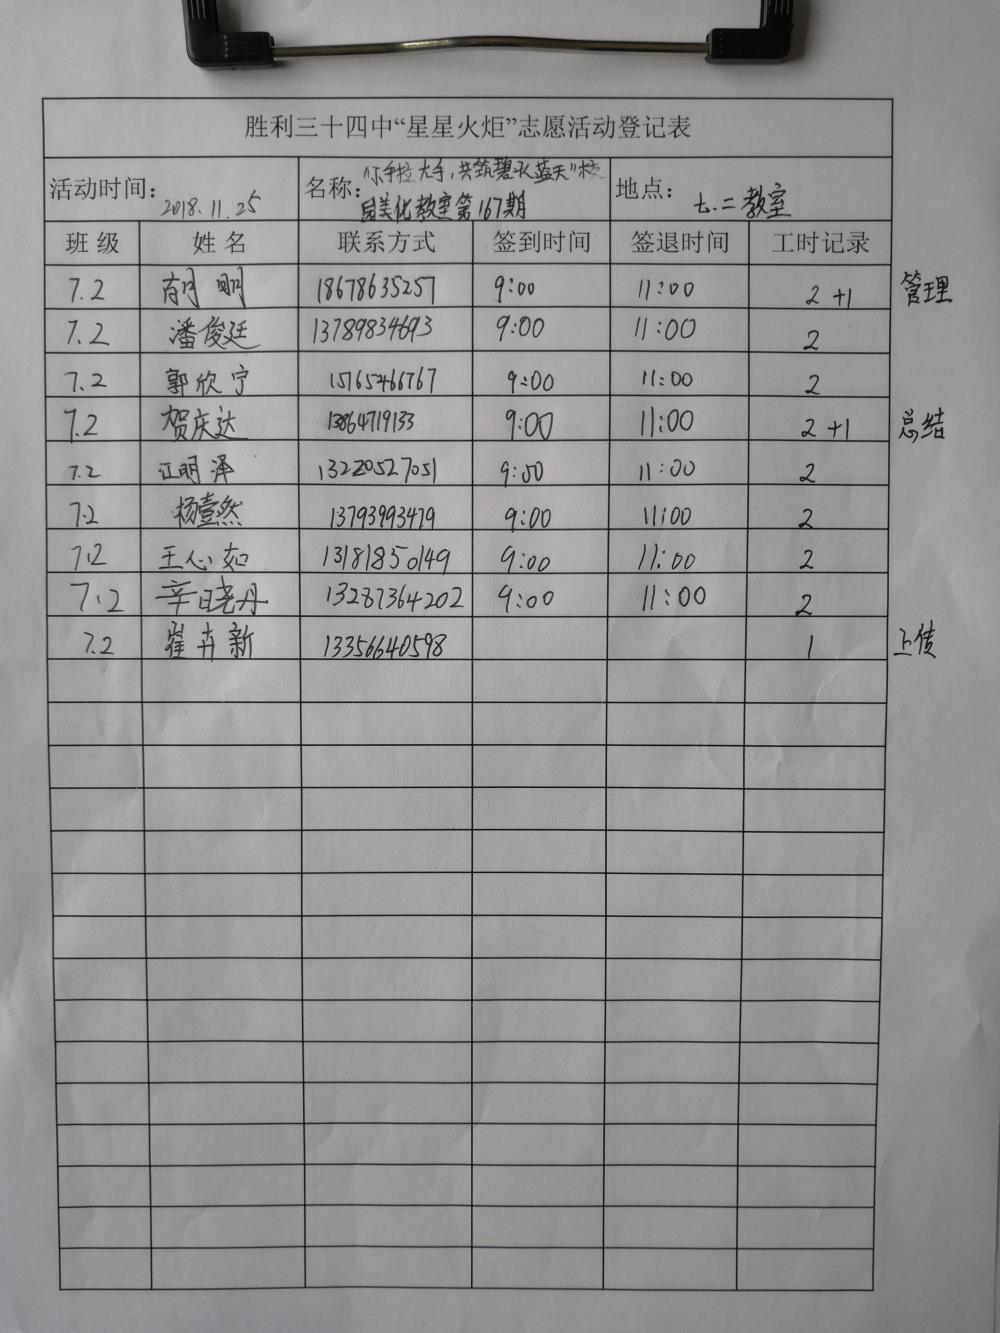 胜利三十四中“星星火炬”志愿活动登记表
活动时间： 2018.11.25 名称：“小手拉大手，共筑碧水蓝天”校 地点： 七.二教室
园美化教室第167期
班级 姓名 联系方式 签到时间 签退时间 工时记录
7.2 明 18678635257 9:00 11:00 2+1 管理
7.2 潘俊廷 13789834693 9:00 11:00 2
7.2 郭欣宁 15765466767 9:00 11:00 2
7.2 贺庆达 13864719133 9:00 11:00 2+1 总结
7.2 江明泽 13220527051 9:00 11:00 2
7.2 杨壹然 13793993479 9:00 11:00 2
7.2 王心如 13181850149 9:00 11:00 2
7.2 辛晓丹 13287364202 9:00 11:00 2
7.2 崔卉新 13356640598 1 上传